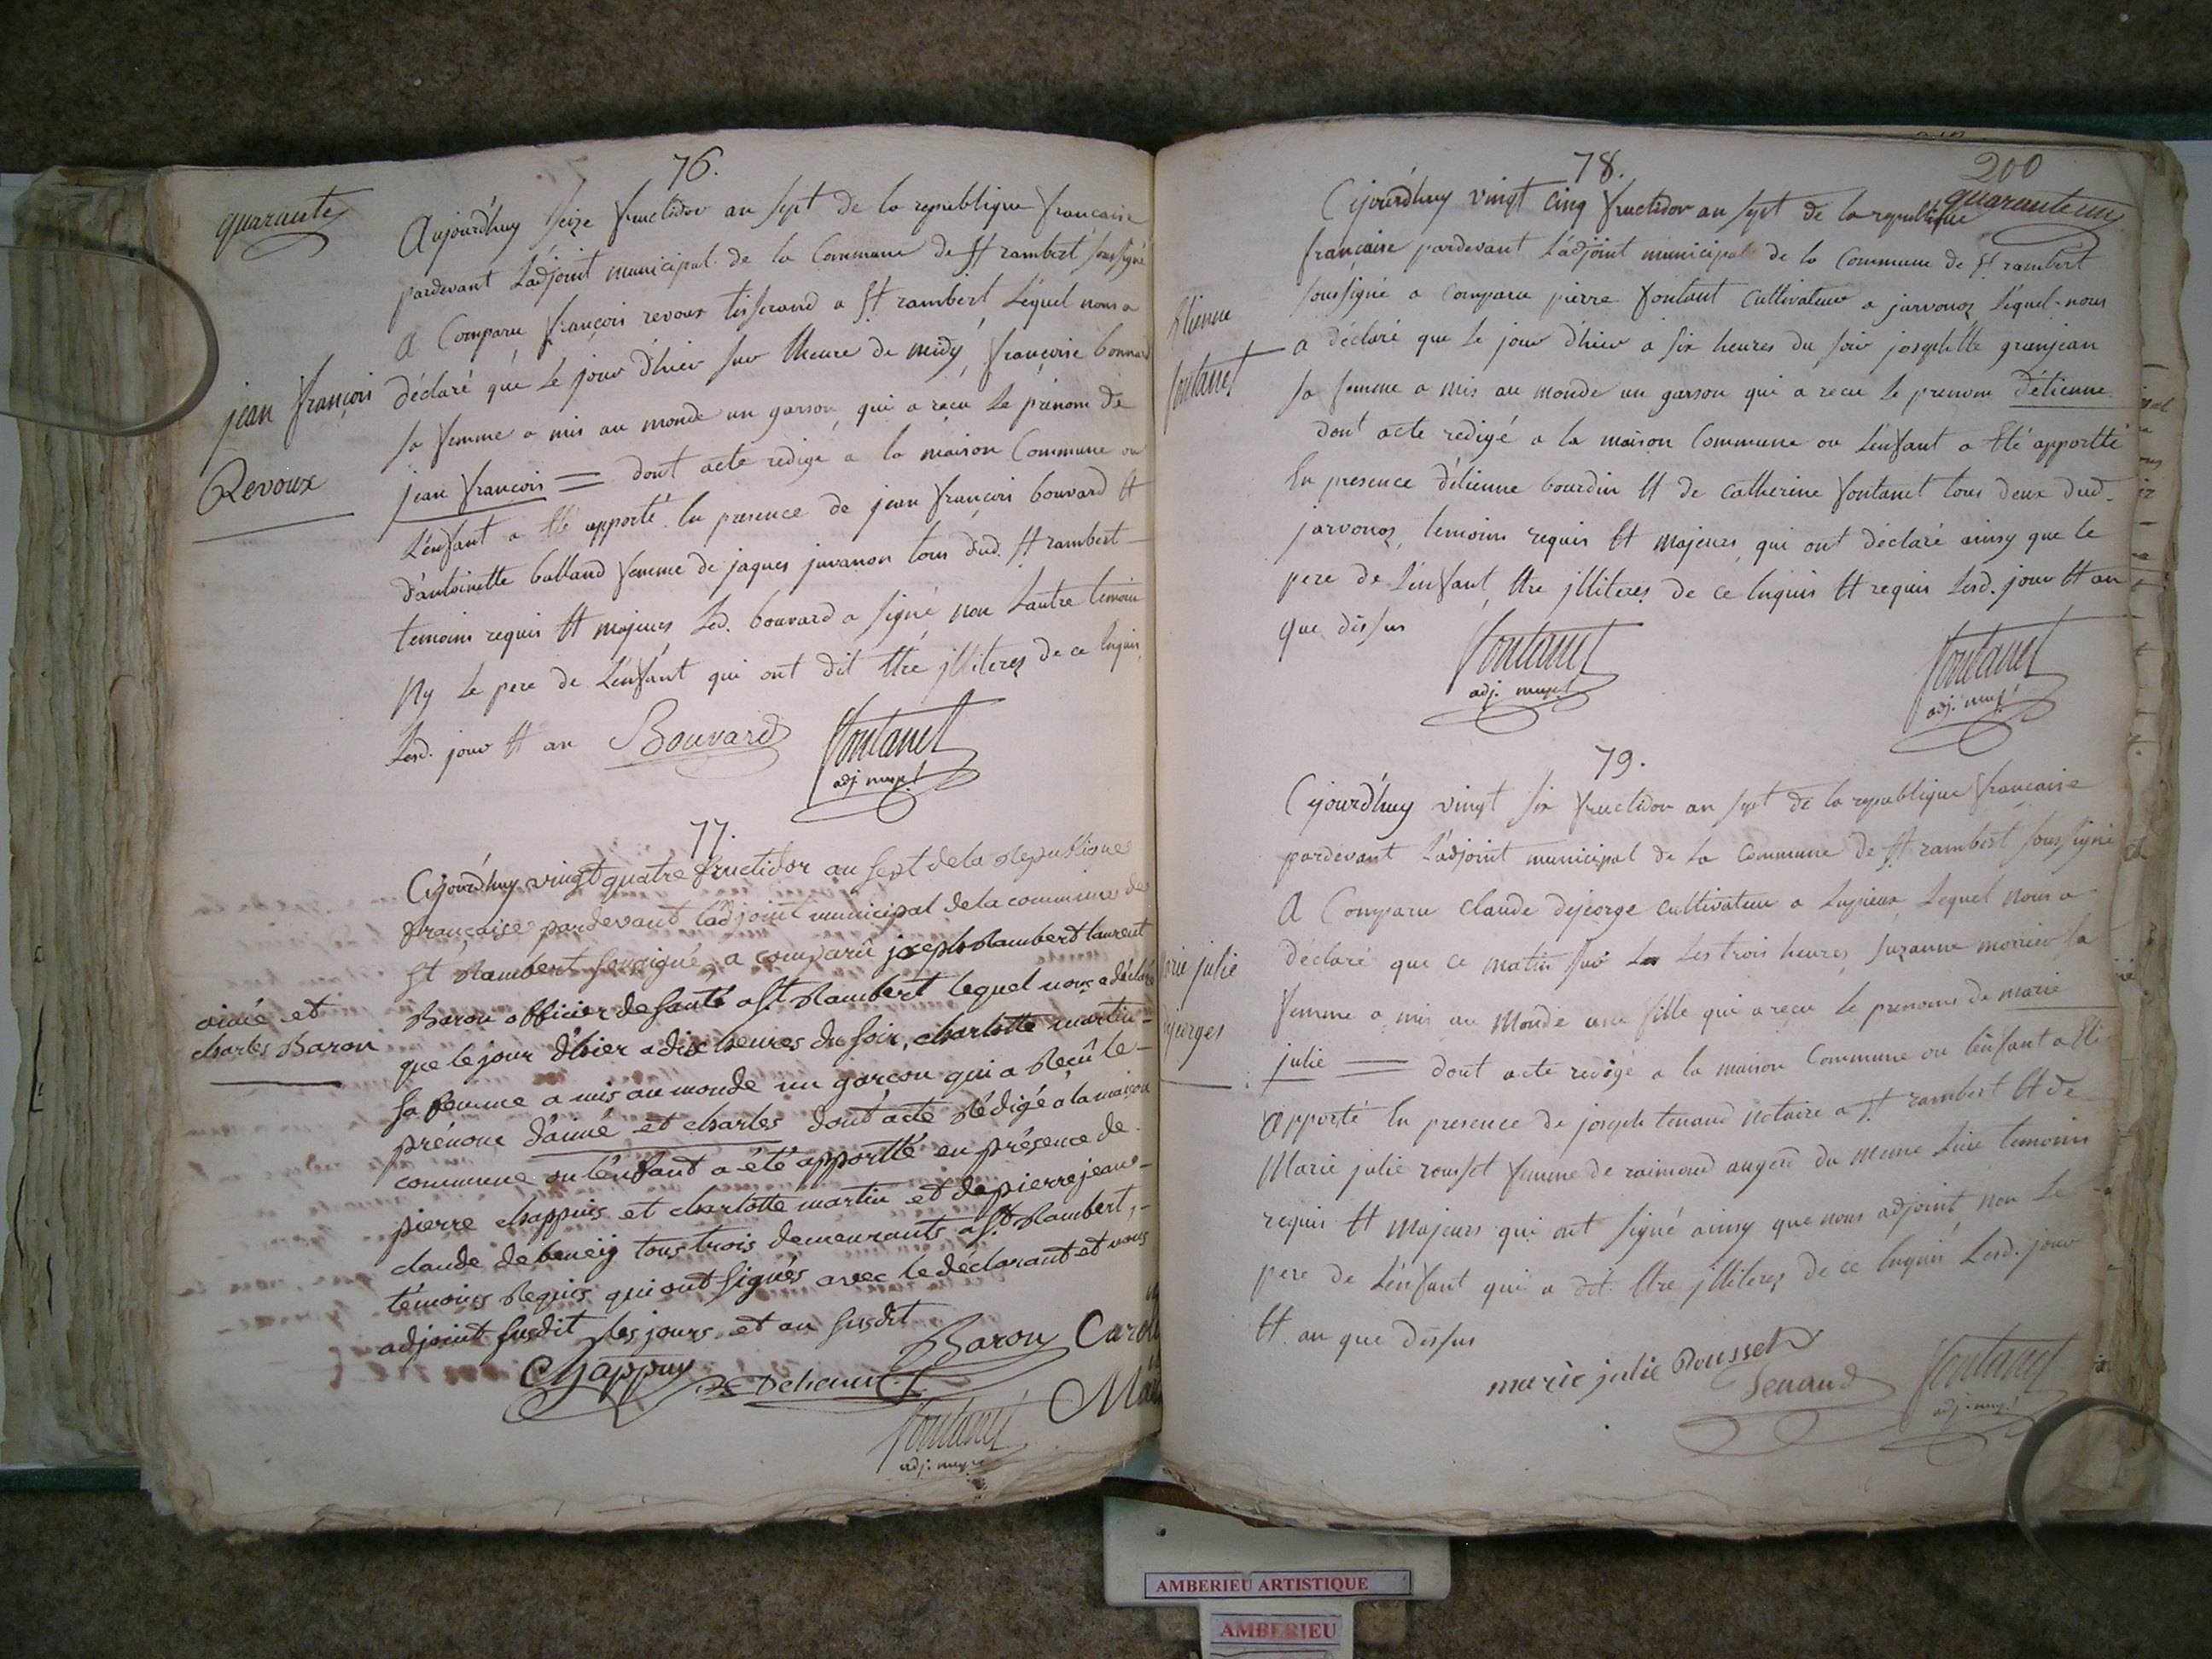 76.
quarante
Aujourd'huy seize fructidor an sept de la republique francaise
pardevant L'adjoint municipal de la Commune de St rambert soussigné
A Comparu françois revoux tisserand a St rambert, Lequel nous a
déclaré que Le jour d'hier sur L'heure de midy, françoise bonnard
sa femme a mis au monde un garson, qui a recu Le prenom de
jean françois = dont acte redigé a la maison Commune ou
L'enfant a été apporté. En presence de jean françois bouvard et
d'antoinette balland femme de jaques juvanon tous dud. St rambert
temoins requis et majeurs Led. bouvard a signé, non L'autre temoin
Ny Le pere de L'enfant qui ont dit être jlliterez de ce Enquis,
Lesd. jour et an
jean françois
Revoux
Bouvard
fontanet
adj. mupl.
77.
Cejourd'huy vingt quatre fructidor an sept de la Republique
française pardevant l'adjoint municipal de la commune de
St Rambert soussigné, a comparû joseph Rambert laurent
Baron officier de santé a St. Rambert lequel nous a déclaré
que le jour d'hier a dix heures du soir, charlotte martin
sa femme a mis au monde un garçon qui a Recû le
prénom d'aimé et charles dont acte Rédigé a la maison
commune ou l'enfant a été apportté en présence de
pierre chappuis et charlotte martin et de pierre jean
claude debeney tous trois demeurants a St. Rambert,
témoins Requis qui ont signés avec le déclarant et nous
adjoint susdit les jours et an susdit
aimé et
charles Baron
Baron
Chappuy
fontanet
adj. mupl.
78.
200
quarante un
Cejourd'huy vingt cinq fructidor an sept de la republique
française pardevant L'adjoint municipal de la Commune de St rambert
soussigné a comparu pierre fontant Cultivateur a jarvonoz Lequel nous
a déclaré que Le jour d'hier a six heures du soir josephtte granjean
sa femme a mis au monde un garson qui a recu Le prenom d'étienne
dont acte redigé a la maison Commune ou L'enfant a été apportté
En presence d'étienne bourdin et de catherine fontanet tous deux dud.
jarvonoz, temoins requis et majeurs, qui ont déclaré ainsy que le
pere de L'enfant, être jlliteres de ce Enquis et requis Lesd. jour et an
que dessus
Etienne
fontanet
fontanet
adj. mupl.
fontanet
adj. mupl.
79.
Cejourd'huy vingt six fructidor an sept de la republique francaise
pardevant L'adjoint municipal de la Commune de St rambert soussigné
A Comparu claude dejeorge cultivateur a Lupieux Lequel nous a
déclaré que ce matin sur Les trois heures, suzanne morrier sa
femme a mis au Monde une fille qui a recu Le prenom de marie
julie = dont acte redigé a la maison Commune ou l'enfant a été
Apporté En presence de joseph tenand notaire a St rambert et de
Marie julie rousset femme de raimond augerd du meme Lieu temoins
requis et majeurs qui ont signé ainsy que nous adjoint, non Le
pere de L'enfant qui a dit être jlliterez de ce Enquis Lesd. jour
et an que dessus
marie julie Rousset
Tenand
fontanet
adj. mupl.
AMBERIEU ARTISTIQUE
AMBERIEU